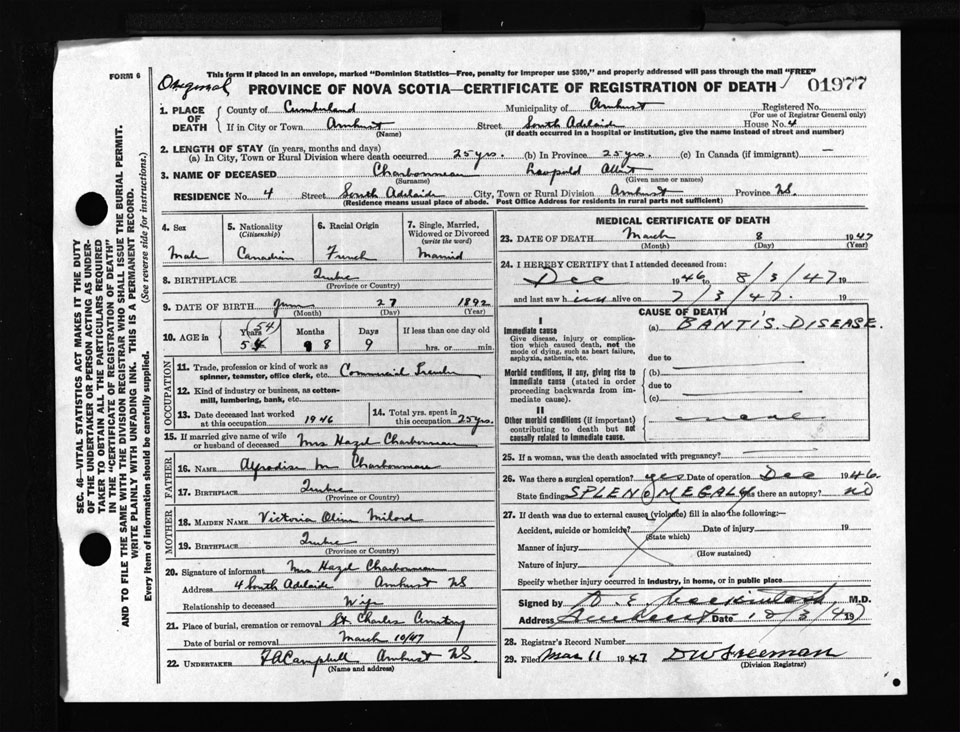 FORM 6
This form if placed in an envelope, marked "Dominion Statistics—Free, penalty for improper use $300," and properly addressed will pass through the mail "FREE"
Original
PROVINCE OF NOVA SCOTIA—CERTIFICATE OF REGISTRATION OF DEATH 01977
1. PLACE OF DEATH County of Cumberland Municipality of Amherst Registered No.
(For use of Registrar General only)
If in City or Town Amherst Street South Adelaide House No. 4
(Name) (If death occurred in a hospital or institution, give the name instead of street and number)
2. LENGTH OF STAY (in years, months and days)
(a) In City, Town or Rural Division where death occurred 25 yrs. (b) In Province 25 yrs. (c) In Canada (if immigrant) —
3. NAME OF DECEASED Charbonneau Leopold Albert
(Surname) (Given name or names)
RESIDENCE No. 4 Street South Adelaide City, Town or Rural Division Amherst Province NS.
(Residence means usual place of abode. Post Office Address for residents in rural parts not sufficient)
4. Sex 5. Nationality (Citizenship) 6. Racial Origin 7. Single, Married, Widowed or Divorced (write the word)
Male Canadian French Married
8. BIRTHPLACE Quebec
(Province or Country)
9. DATE OF BIRTH June 27 1892
(Month) (Day) (Year)
10. AGE in Years Months Days If less than one day old
54 8 9 hrs. or min.
OCCUPATION
11. Trade, profession or kind of work as spinner, teamster, office clerk, etc.
12. Kind of industry or business, as cotton-mill, lumbering, bank, etc.
13. Date deceased last worked at this occupation 1946 14. Total yrs. spent in this occupation 25 yrs.
15. If married give name of wife or husband of deceased Mrs Hazel Charbonneau
FATHER
16. NAME M Charbonneau
17. BIRTHPLACE Quebec
(Province or Country)
MOTHER
18. MAIDEN NAME Victoria Olive Milord
19. BIRTHPLACE Quebec
(Province or Country)
20. Signature of informant Mrs Hazel Charbonneau
Address 4 South Adelaide Amherst NS
Relationship to deceased Wife
21. Place of burial, cremation or removal St Charles Cemetery
Date of burial or removal March 10/47
22. UNDERTAKER F A Campbell Amherst NS.
(Name and address)
MEDICAL CERTIFICATE OF DEATH
23. DATE OF DEATH March 8 1947
(Month) (Day) (Year)
24. I HEREBY CERTIFY that I attended deceased from:
Dec 1946 to 8/3/47 19
and last saw him alive on 7/3/47. 19
CAUSE OF DEATH
I
Immediate cause (a) BANTI'S DISEASE.
Give disease, injury or complication which caused death, not the mode of dying, such as heart failure, asphyxia, asthenia, etc.
due to
Morbid conditions, if any, giving rise to immediate cause (stated in order proceeding backwards from immediate cause).
(b)
due to
(c)
II
Other morbid conditions (if important) contributing to death but not causally related to immediate cause.
25. If a woman, was the death associated with pregnancy?
26. Was there a surgical operation? yes Date of operation Dec 1946.
State finding SPLENOMEGALY Was there an autopsy? no
27. If death was due to external causes (violence) fill in also the following:—
Accident, suicide or homicide? Date of injury 19
(State which)
Manner of injury
(How sustained)
Nature of injury
Specify whether injury occurred in industry, in home, or in public place
Signed by M.D.
Address Amherst Date 8/3/47 19
28. Registrar's Record Number
29. Filed Mar 11 1947 DW Freeman
(Division Registrar)
SEC. 46—VITAL STATISTICS ACT MAKES IT THE DUTY
OF THE UNDERTAKER OR PERSON ACTING AS UNDER-
TAKER TO OBTAIN ALL THE PARTICULARS REQUIRED
IN THE "CERTIFICATE OF REGISTRATION OF DEATH"
AND TO FILE THE SAME WITH THE DIVISION REGISTRAR WHO SHALL ISSUE THE BURIAL PERMIT.
WRITE PLAINLY WITH UNFADING INK. THIS IS A PERMANENT RECORD.
Every item of information should be carefully supplied. (See reverse side for instructions.)